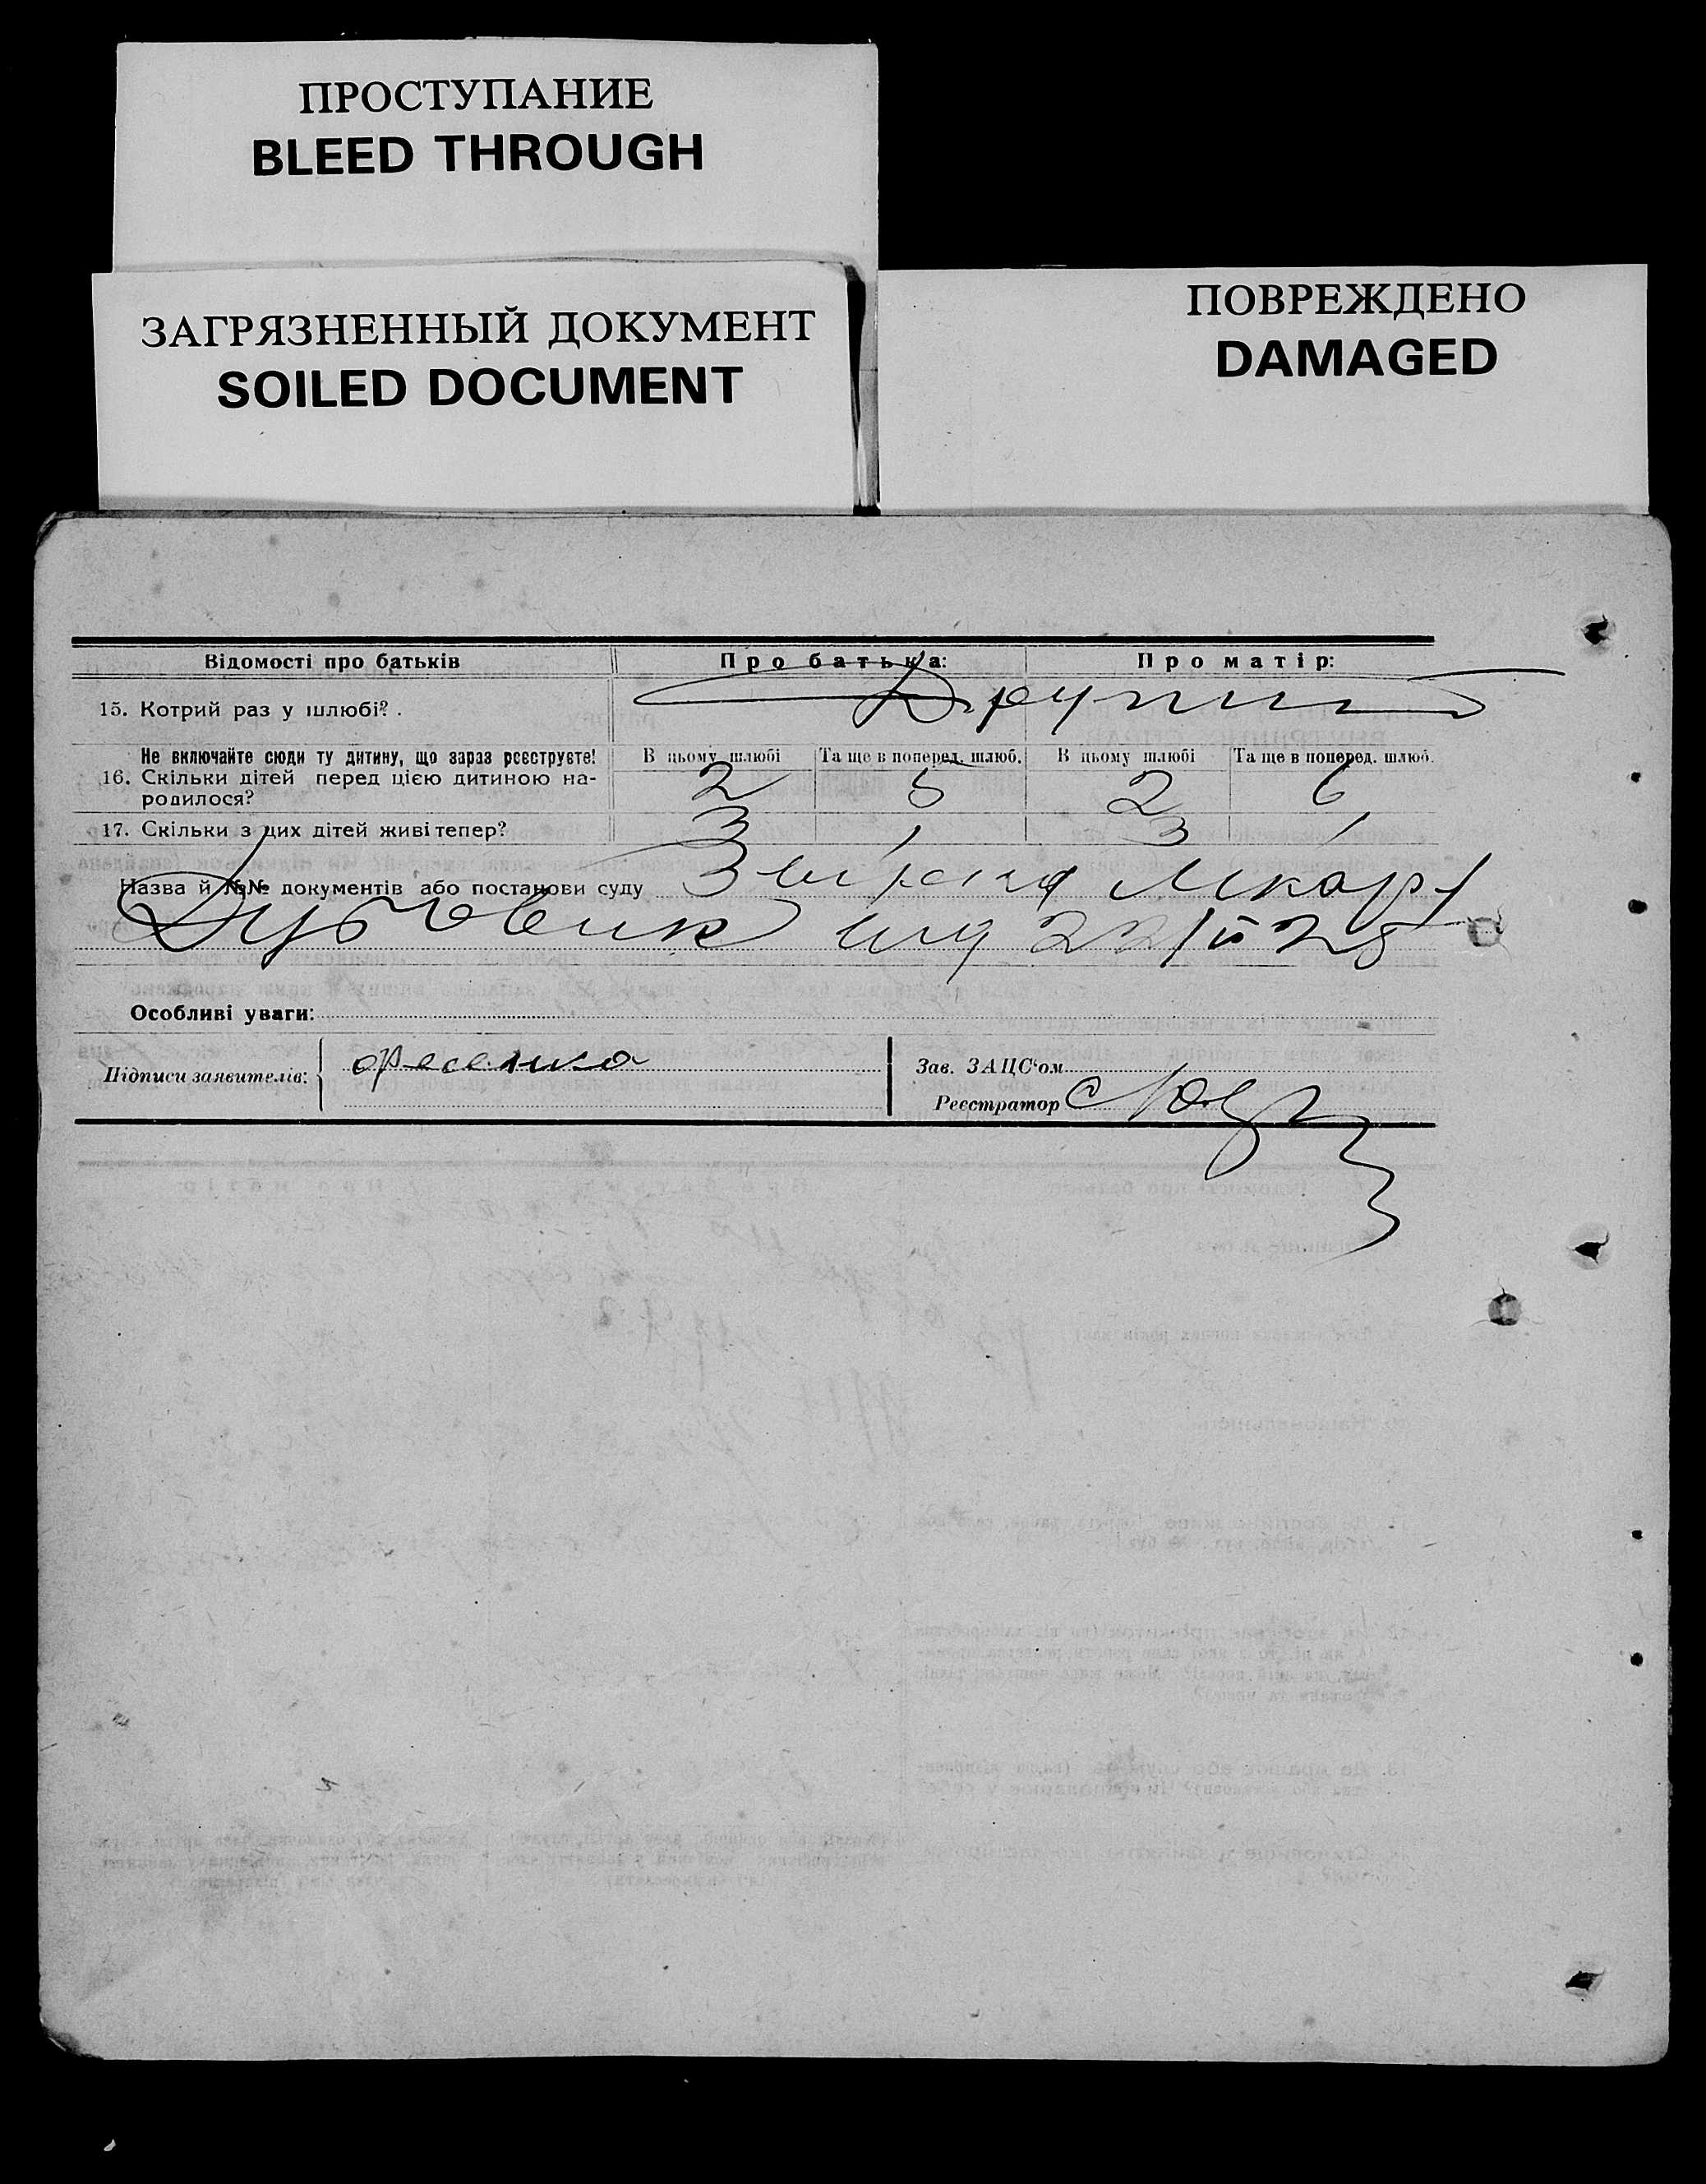 ПРОСТУПАНИЕ
BLEED THROUGH
ЗАГРЯЗНЕННЫЙ ДОКУМЕНТ
SOILED DOCUMENT
ПОВРЕЖДЕНО
DAMAGED
Відомості про батьків Про батька: Про матір:
15. Котрий раз у шлюбі? .
Не включайте сюди ту дитину, що зараз реєструєте! В цьому шлюбі Та ще в поперед. шлюб. В цьому шлюбі Та ще в поперед. шлюб.
16. Скільки дітей перед цією дитиною на-
родилося? 2 5 2 6
17. Скільки з цих дітей живі тепер? 3 1 3 1
Назва й №№ документів або постанови суду
22/
Особливі уваги:
Підписи заявителів: Фесенко
Зав. ЗАЦС'ом
Реєстратор